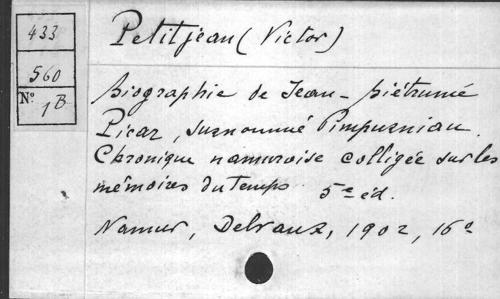 433
560
N° 1B
Petitjean (Victor)
Biographie de Jean-Biétrumé
Picar, surnommé Pimpurniau.
Chronique namuroise colligée sur les
mémoires du temps. 5e éd.
Namur, Delvaux, 1902, 16°